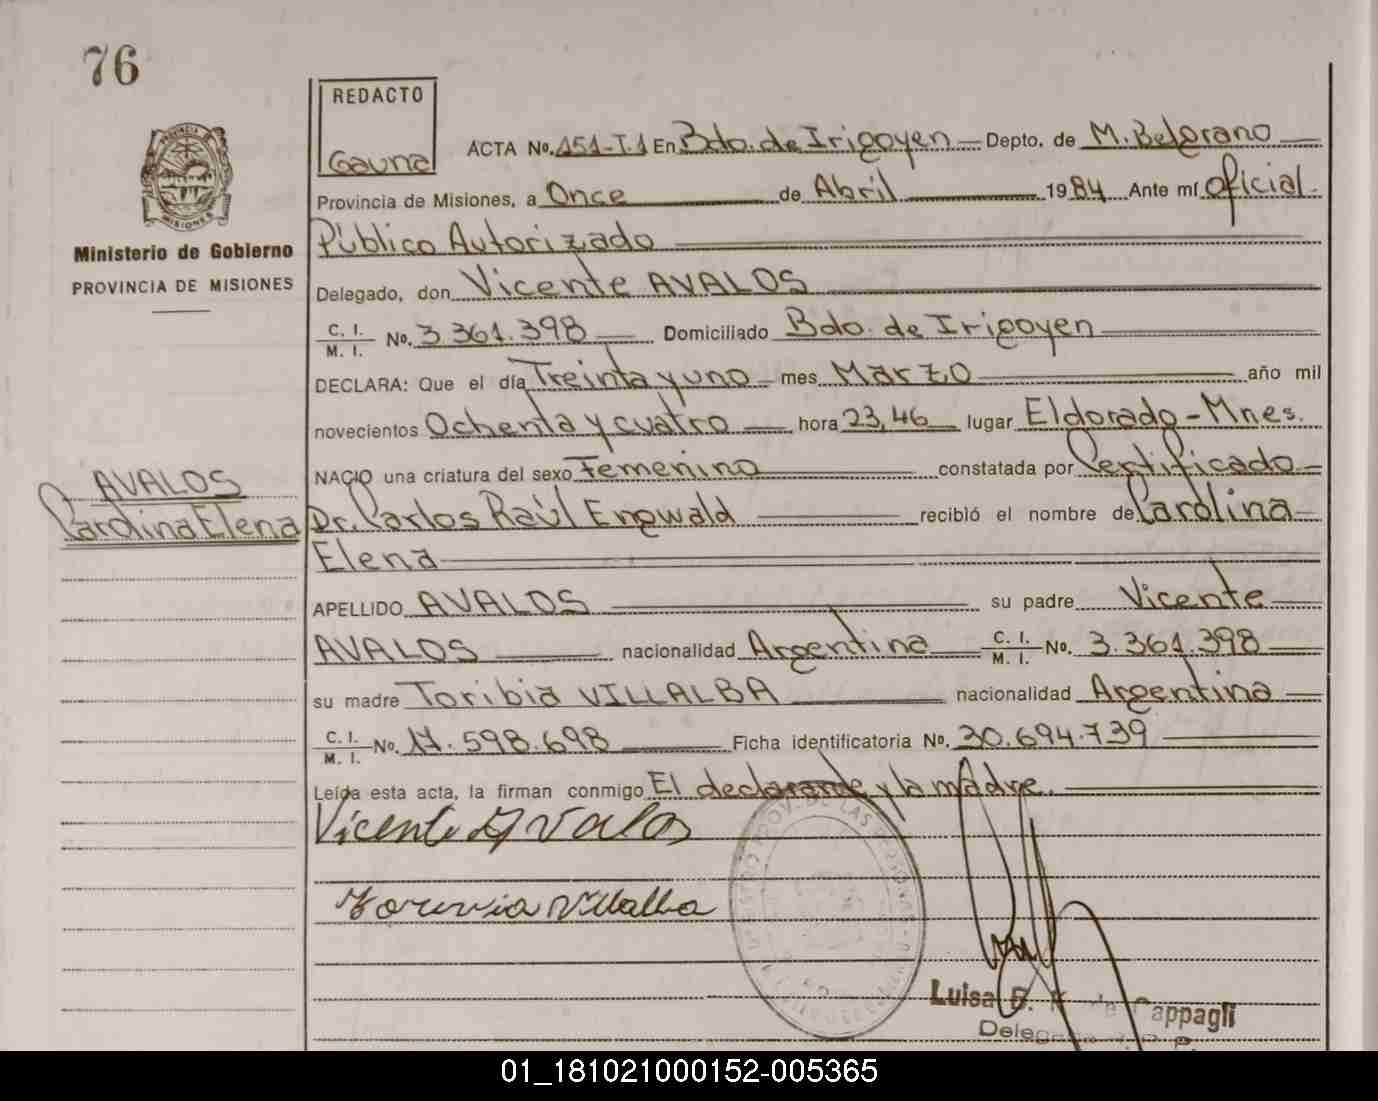 76
REDACTO
Gauna
PROVINCIA DE
MISIONES
Ministerio de Gobierno
PROVINCIA DE MISIONES
ACTA No. 151-T.1 En Bdo. de Irigoyen Depto. de M. Belgrano
Provincia de Misiones, a Once de Abril 1984 Ante mí oficial
Público Autorizado
Delegado, don Vicente AVALOS
C. I. / M. I. No. 3.361.398 Domiciliado Bdo. de Irigoyen
DECLARA: Que el día Treinta y uno mes Marzo año mil
novecientos Ochenta y cuatro hora 23,46 lugar Eldorado - Mnes.
NACIO una criatura del sexo Femenino constatada por Certificado
AVALOS
Carolina Elena
Dr. Carlos Raúl Engwald recibió el nombre de Carolina
Elena
APELLIDO AVALOS su padre Vicente
AVALOS nacionalidad Argentina C. I. / M. I. No. 3.361.398
su madre Toribia VILLALBA nacionalidad Argentina
C. I. / M. I. No. 17.598.698 Ficha identificatoria No. 30.694.739
Leída esta acta, la firman conmigo El declarante y la madre.
Vicente Avalos
Toruvia Villalba
Luisa de Cappagli
01_181021000152-005365